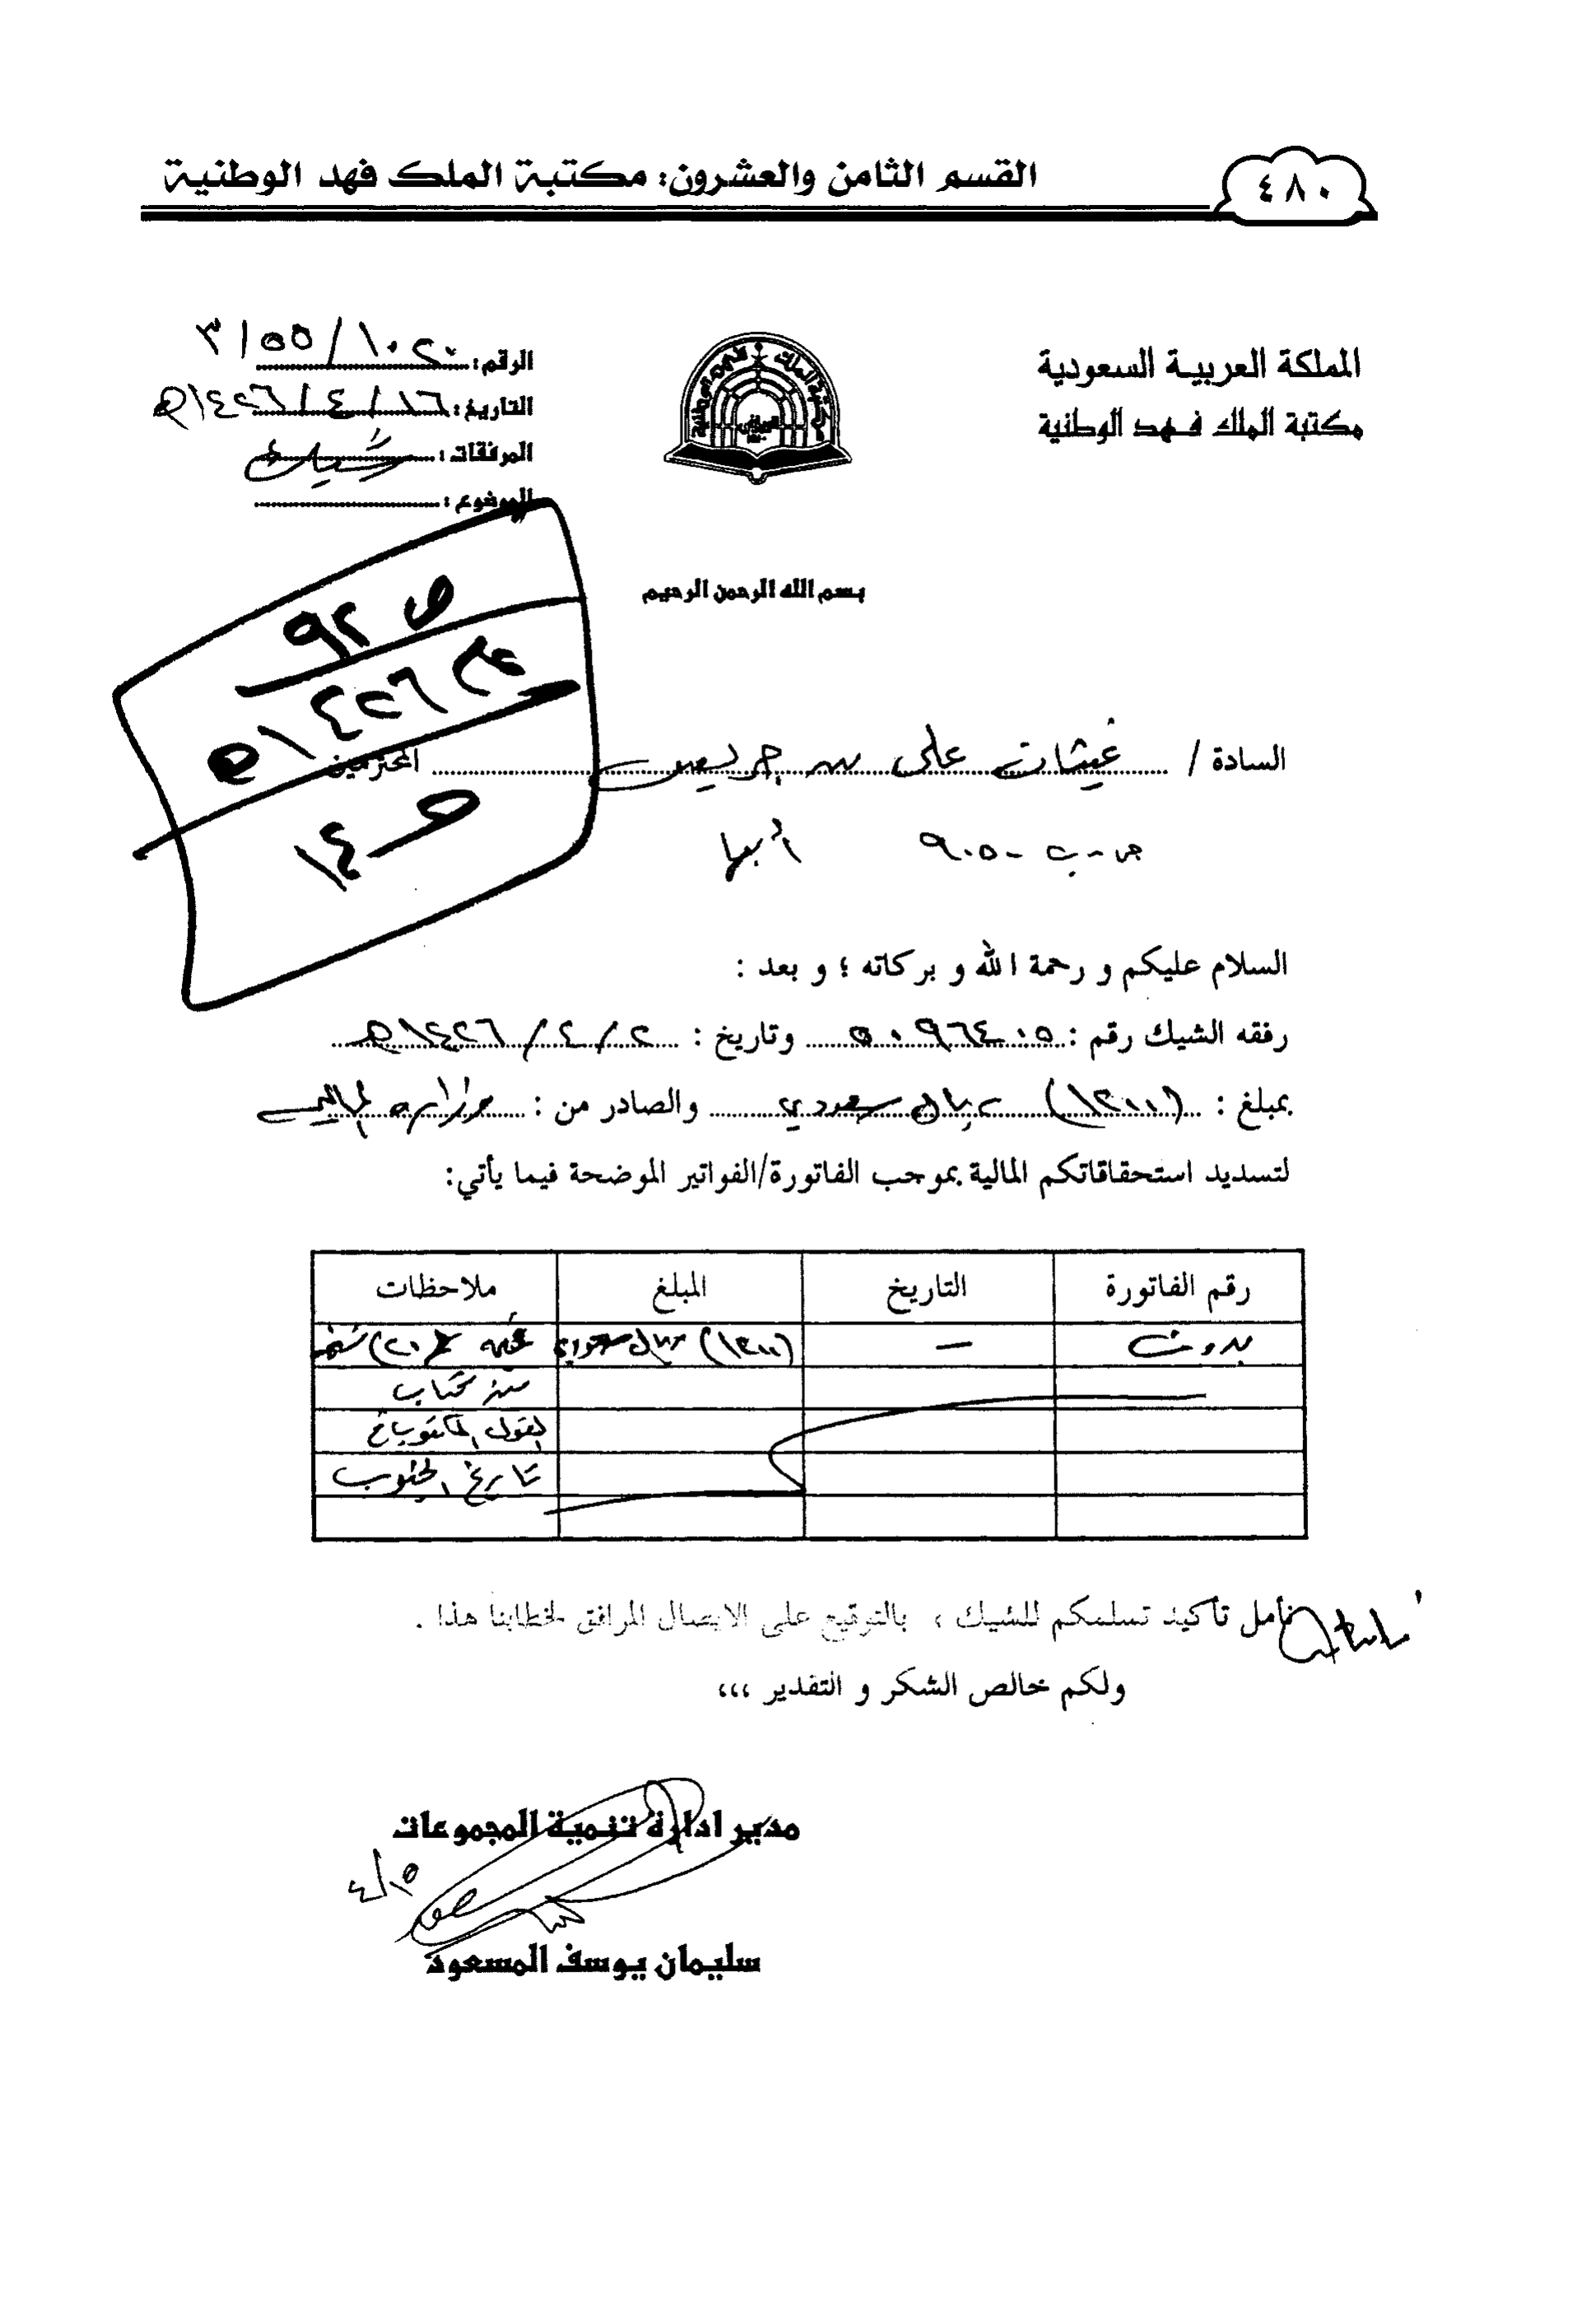 القسم الثامن والعشرون: مكتبة الملك فهد الوطنية
٤٨٠
المملكة العربية السعودية
مكتبة الملك فهد الوطنية
الرقم: ٣/٥٥/١٠٢٠
التاريخ: ١٦/٤/١٤٢٦هـ
المرفقات: شيك
الموضوع:
بسم الله الرحمن الرحيم
ص ٩٢
١٤٢٦هـ
١٤
السادة / غيثان علي بن جريس المحترمين
ص.ب ٩٠٥٠ أبها
السلام عليكم و رحمة الله و بركاته ؛ و بعد :
رفقه الشيك رقم : ٥٠٩٦٤٠٥ وتاريخ : ٢/٤/١٤٢٦هـ
بمبلغ : (١٢٠٠) ريال سعودي والصادر من : وزارة المالية
لتسديد استحقاقاتكم المالية بموجب الفاتورة/الفواتير الموضحة فيما يأتي:
رقم الفاتورة التاريخ المبلغ ملاحظات
بدون – (١٢٠٠) ريال سعودي قيمة (٢٠) نسخة
من كتاب
القول المكتوب في
تاريخ الجنوب
نأمل تأكيد تسلمكم للشيك ، بالتوقيع على الايصال المرافق لخطابنا هذا .
ولكم خالص الشكر و التقدير ،،،
مدير ادارة تنمية المجموعات
٤/١٥
سليمان يوسف المسعود